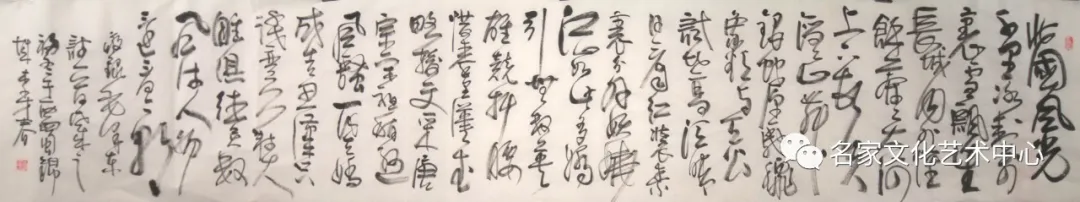 北國風光
千里冰封萬
里雪飄望
長城内外惟
餘莽莽大河
上下頓失
滔滔山舞
銀蛇原馳蠟
象欲與天公
試比高須晴
日看紅裝素
裹分外妖嬈
江山如此多嬌
引無數英
雄競折腰
惜秦皇漢武
略輸文采唐
宗宋祖稍遜
風騷一代天驕
成吉思汗只
識彎弓射大
雕俱往矣數
風流人物
還看今朝
名家文化艺术中心